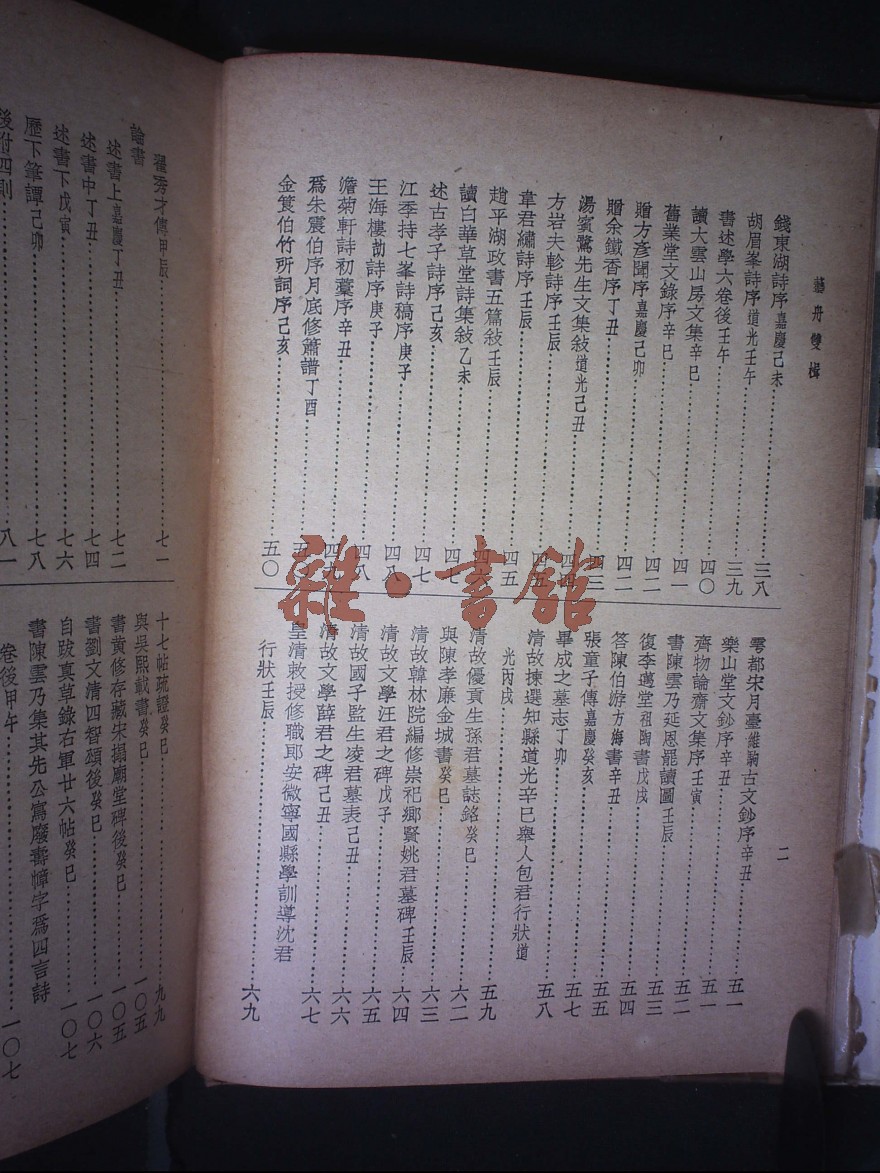 藝舟雙楫
錢東湖詩序嘉慶己未……三八
胡眉峯詩序道光壬午……三九
書述學六卷後壬午……四〇
讀大雲山房文集辛巳……四一
舊業堂文錄序辛巳……四二
贈方彥聞序嘉慶己卯……四二
贈余鐵香序丁丑……四三
湯賓鷺先生文集敍道光己丑……四四
方岩夫畛詩序壬辰……四五
韋君繡詩序壬辰……四五
趙平湖政書五篇敍壬辰……四六
讀白華草堂詩集敍乙未……四七
述古孝子詩序己亥……四七
江季持七峯詩稿序庚子……四八
王海樓劼詩序庚子……四八
澹菊軒詩初藁序辛丑……四九
爲朱震伯序月底修簫譜丁酉……五〇
金筤伯竹所詞序己亥……五〇
雩都宋月臺維駒古文鈔序辛丑……五一
樂山堂文鈔序辛丑……五一
齊物論齋文集序壬寅……五二
書陳雲乃延恩罷讀圖壬辰……五三
復李邁堂祖陶書戊戌……五四
答陳伯游方海書辛丑……五五
張童子傳嘉慶癸亥……五七
畢成之墓志丁卯……五八
清故揀選知縣道光辛巳舉人包君行狀道
光丙戌……五九
清故優貢生孫君墓誌銘癸巳……六二
與陳孝廉金城書癸巳……六三
清故翰林院編修崇祀鄉賢姚君墓碑壬辰……六四
清故文學汪君之碑戊子……六五
清故國子監生凌君墓表己丑……六六
清故文學薛君之碑己丑……六七
皇清敕授修職郎安徽寧國縣學訓導沈君
行狀壬辰……六九
二
翟秀才傳甲辰……七一
論書
述書上嘉慶丁丑……七二
述書中丁丑……七四
述書下戊寅……七六
歷下筆譚己卯……七八
後附四則……八一
十七帖疏證癸巳……九九
與吳熙載書癸巳……一〇五
書黃修存藏宋搨廟堂碑後癸巳……一〇五
書劉文清四智頌後癸巳……一〇六
自跋眞草錄右軍廿六帖癸巳……一〇七
書陳雲乃集其先公寫廢壽幛字爲四言詩
卷後甲午……一〇七
雜·書館